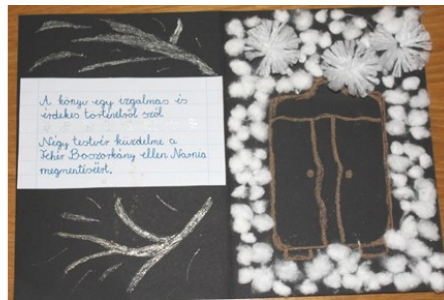 A könyv egy izgalmas és
érdekes történetről szól.
Négy testvér küzdelme a
Fehér Boszorkány ellen Narnia
megmentéséért.